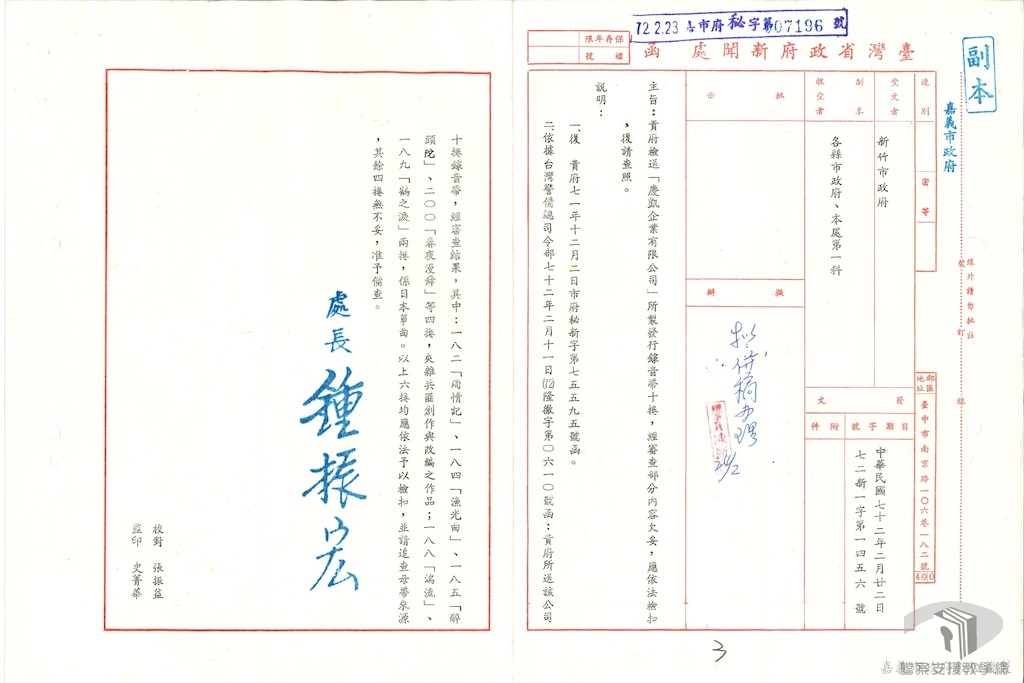 副本
嘉義市政府
72.2.23 嘉市府秘字第007196號
臺灣省政府新聞處 函
保存年限
檔號
線片請勿批註
裝訂線
速別
密等
郵區 地址
臺中市南京路一〇六巷一八二號
400
受文者
新竹市政府
副本收受者
各縣市政府、本處第一科
發文
日期
中華民國七十二年二月廿二日
字號
七二新一字第一四五六號
附件
批示
擬辦
擬併稿辦理
24/2
主旨：貴府檢送「慶凱企業有限公司」所製發行錄音帶十捲，經審查部分內容欠妥，應依法檢扣
，復請查照。
說明：
一、復 貴府七一年十二月二日市府秘新字第七五五九五號函。
二、依據台灣警備總司令部七十二年二月十一日(72)隆徹字第〇六一〇號函：貴府所送該公司
十捲錄音帶，經審查結果，其中：一八二「殉情記」、一八四「漁光曲」、一八五「醉
頭陀」、二〇〇「春夜漫舞」等四捲，夾雜共匪創作與改編之作品；一八八「湍流」、
一八九「鶴之淚」兩捲，係日本箏曲。以上六捲均應依法予以檢扣，並請追查母帶來源
，其餘四捲無不妥，准予備查。
處長 鍾振宏
校對 張振益
監印 史菁華
3
檔案支援教學網